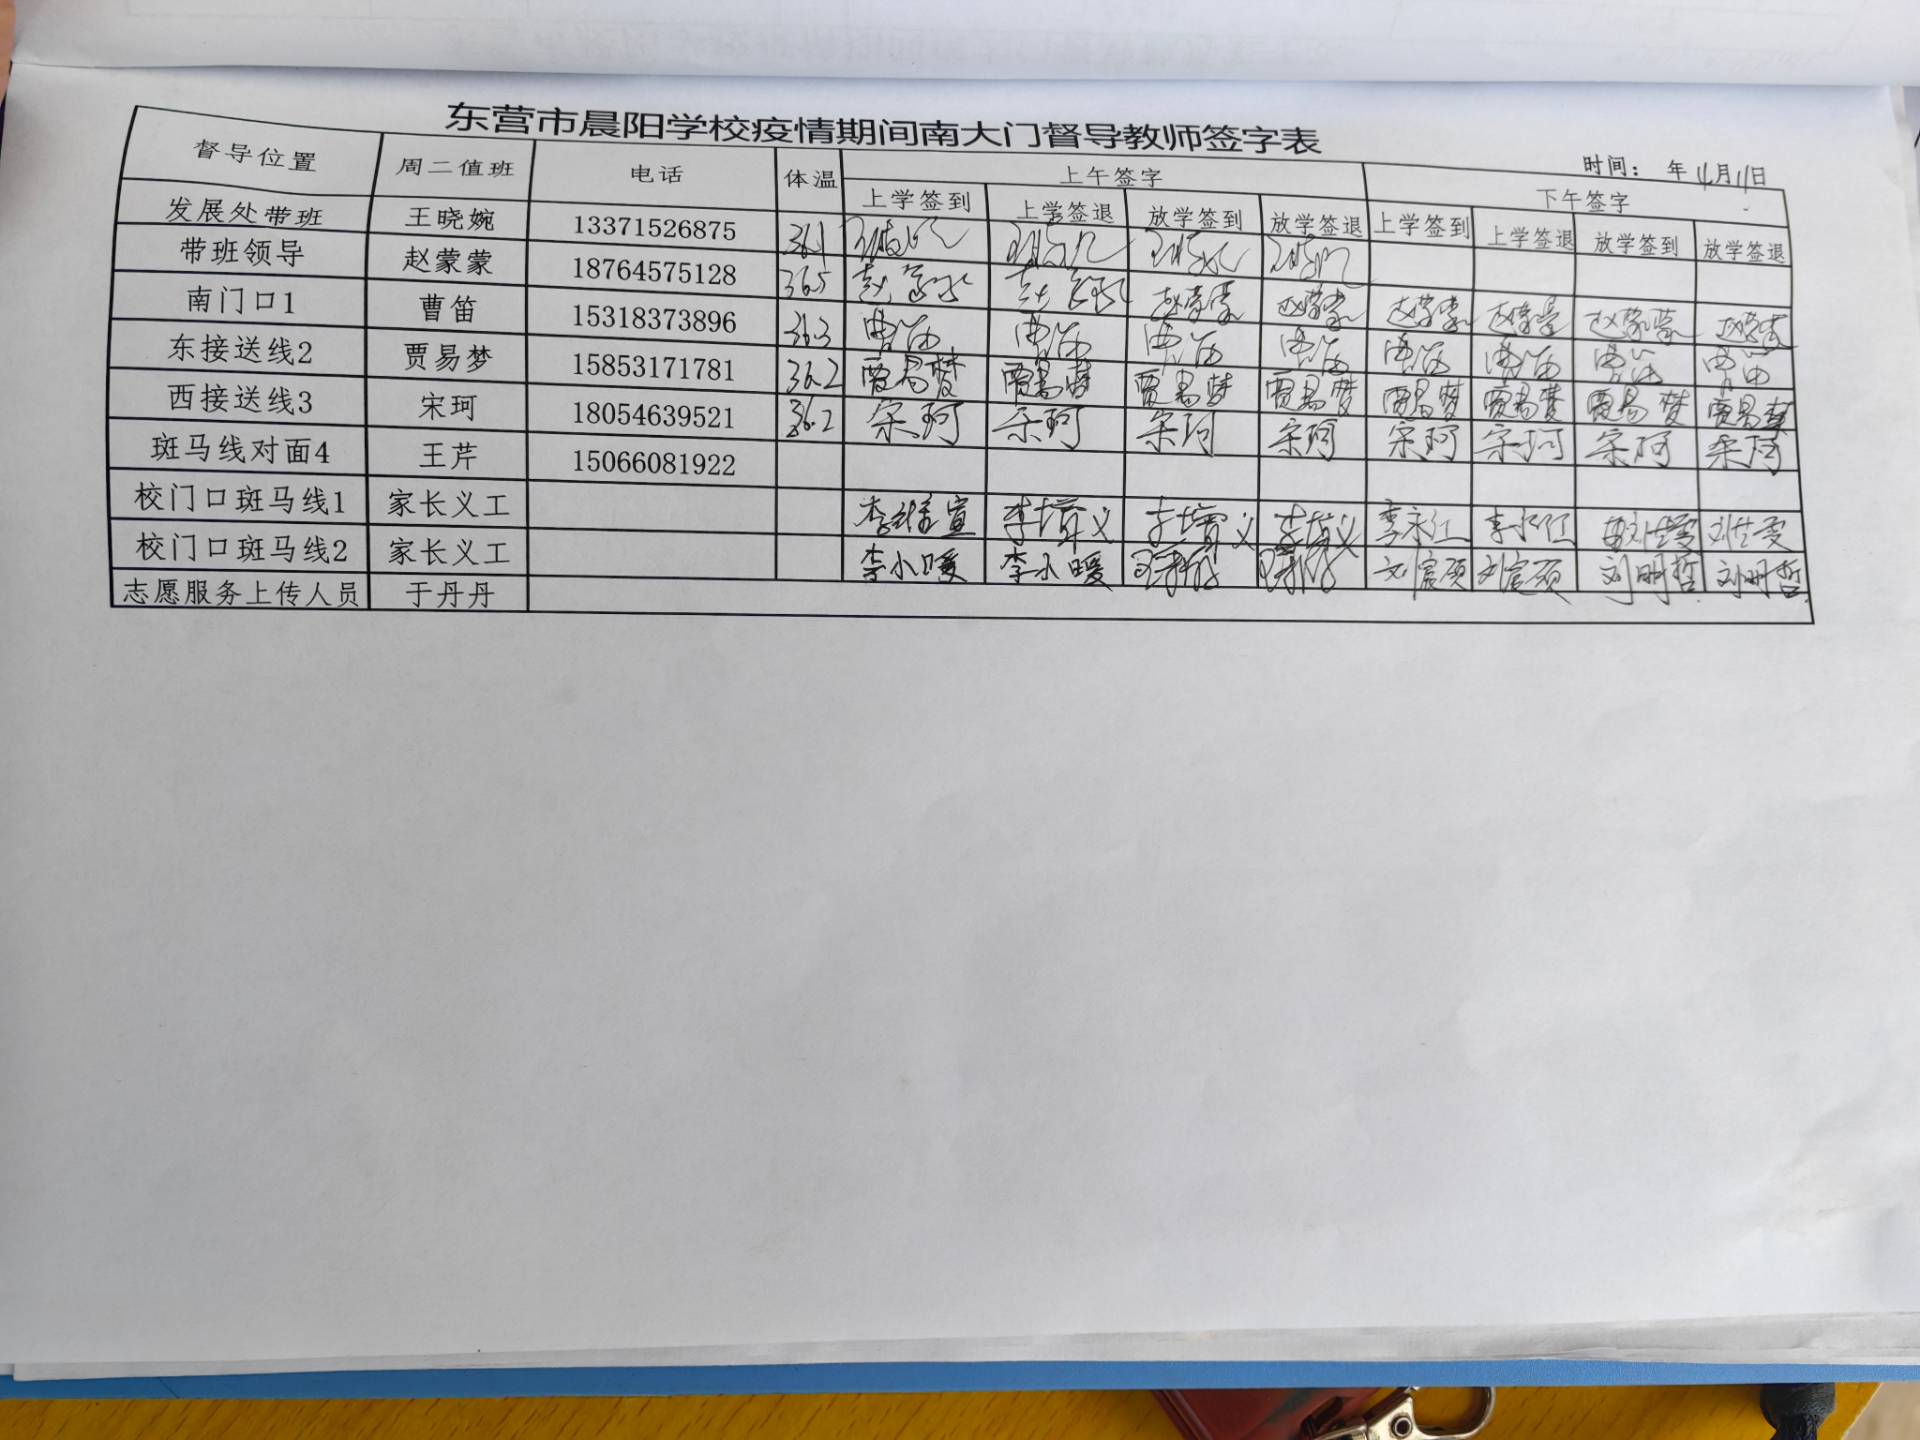 东营市晨阳学校疫情期间南大门督导教师签字表
时间: 年 4月11日
督导位置 周二值班 电话 体温 上午签字 下午签字
上学签到 上学签退 放学签到 放学签退 上学签到 上学签退 放学签到 放学签退
发展处带班 王晓婉 13371526875 36.1
带班领导 赵蒙蒙 18764575128 36.5 赵蒙蒙 赵蒙蒙 赵蒙蒙 赵蒙蒙 赵蒙蒙 赵蒙蒙 赵蒙蒙 赵蒙蒙
南门口1 曹笛 15318373896 36.3 曹笛 曹笛 曹笛 曹笛 曹笛 曹笛 曹笛 曹笛
东接送线2 贾易梦 15853171781 36.2 贾易梦 贾易梦 贾易梦 贾易梦 贾易梦 贾易梦 贾易梦 贾易梦
西接送线3 宋珂 18054639521 36.2 宋珂 宋珂 宋珂 宋珂 宋珂 宋珂 宋珂 宋珂
斑马线对面4 王芹 15066081922
校门口斑马线1 家长义工 李永江 李永江
校门口斑马线2 家长义工 李小暖 李小暖 刘宸硕 刘宸硕 刘明哲 刘明哲
志愿服务上传人员 于丹丹